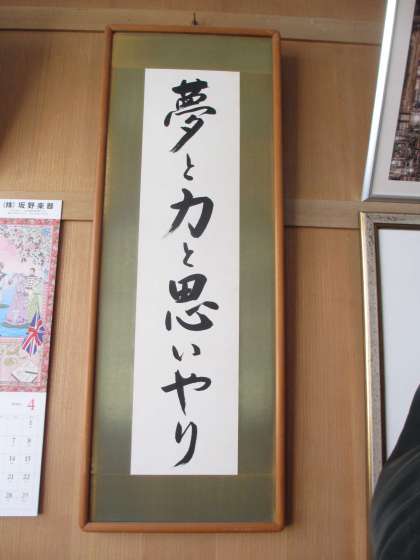 夢と力と思いやり
(株)坂野楽器
4
1
7 8
14 15
21 22
28 29